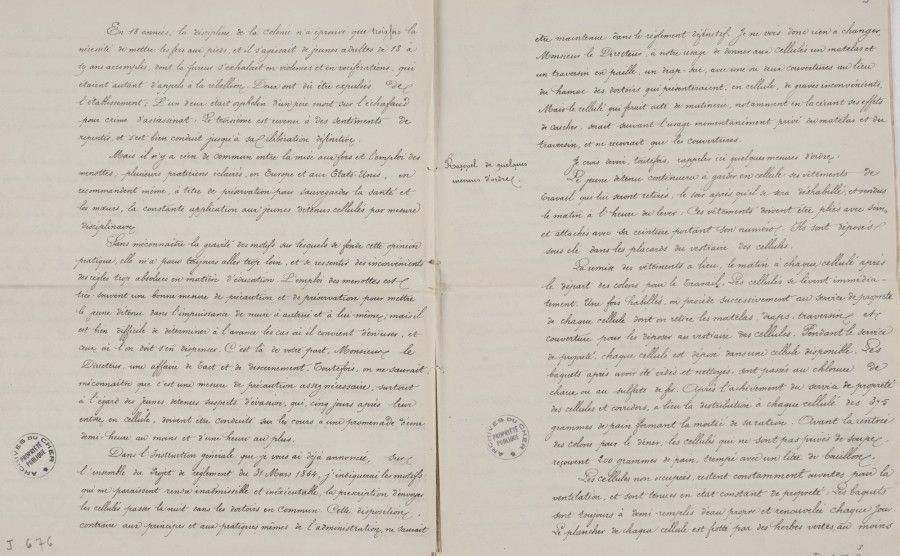 En 18 années, la discipline de la colonie n'a éprouvé que trois fois la
nécessité de mettre les fers aux pieds, et il s'agissait de jeunes adultes de 18 à
19 ans accomplis, dont la fureur s'exhalait en violences et en vociférations, qui
étaient autant d'appels à la rébellion. Deux ont dû être expulsés de
l'établissement; L'un d'eux était orphelin d'un père mort sur l'échafaud
pour crime d'assassinat. Le troisième est revenu à des sentiments de
repentir, et s'est bien conduit jusqu'à sa libération définitive.
Mais il n'y a rien de commun entre la mise aux fers et l'emploi des
menottes; plusieurs praticiens éclairés, en Europe et aux États-Unis, en
recommandent même, à titre de préservation pour sauvegarder la santé et
les mœurs, la constante application aux jeunes détenus cellulés par mesure
disciplinaire.
Sans méconnaître la gravité des motifs sur lesquels se fonde cette opinion
pratique, elle m'a paru toujours aller trop loin, et se ressentir des inconvénients
des règles trop absolues en matière d'éducation. L'emploi des menottes est
très-souvent une bonne mesure de précaution et de préservation pour mettre
le jeune détenu dans l'impuissance de nuire à autrui et à lui-même; mais il
est bien difficile de déterminer à l'avance les cas où il convient d'en user, et
ceux où l'on doit s'en dispenser. C'est là de votre part, Monsieur le
Directeur, une affaire de tact et de discernement. Toutefois, on ne saurait
méconnaître que c'est une mesure de précaution assez nécessaire, surtout
à l'égard des jeunes détenus suspects d'évasion, qui, cinq jours après leur
entrée en cellule, doivent être conduits sur les cours à une promenade d'une
demi-heure au moins et d'une heure au plus.
Dans l'Instruction générale que je vous ai déjà annoncée, sur
l'ensemble du Projet de règlement du 31 Mars 1864, j'indiquerai les motifs
qui me paraissent rendre inadmissible et inexécutable, la prescription d'envoyer
les cellulés passer la nuit dans les dortoirs en Commun. Cette disposition,
contraire aux principes et aux pratiques mêmes de l'administration, ne saurait
J 676
ARCHIVES DU CHER
PROPRIÉTÉ PUBLIQUE
être maintenue dans le règlement définitif. Je ne vois donc rien à changer,
Monsieur le Directeur, à notre usage de donner aux cellulés un matelas et
un traversin en paille, un drap-sac, avec une ou deux couvertures au lieu
du hamac des dortoirs qui présenteraient, en cellule, de graves inconvénients.
Mais le cellulé qui ferait acte de mutinerie, notamment en lacérant ses effets
de couchage, serait suivant l'usage momentanément privé du matelas et du
traversin, et ne recevrait que les couvertures.
Rappel de quelques
mesures d'ordre.
Je crois devoir, toutefois, rappeler ici quelques mesures d'ordre.
Le jeune détenu continuera à garder en cellule ses vêtements de
travail qui lui seront retirés, le soir après qu'il se sera déshabillé, et rendus
le matin à l'heure du lever. Ces vêtements doivent être pliés avec soin,
et attachés avec sa ceinture portant son numéro. Ils sont déposés
sous clé dans les placards du vestiaire des cellules.
La remise des vêtements a lieu, le matin à chaque cellulé après
le départ des colons pour le travail. Les cellulés se lèvent immédia-
tement. Une fois habillés, on procède successivement au service de propreté
de chaque cellule dont on retire les matelas, draps, traversins et
couverture pour les déposer au vestiaire des cellules. Pendant le service
de propreté, chaque cellulé est déposé dans une cellule disponible. Les
baquets après avoir été vidés et nettoyés, sont passés au chlorure de
chaux ou au sulfate de fer. Après l'achèvement du service de propreté
des cellules et corridors, a lieu la distribution à chaque cellulé des 375
grammes de pain formant la moitié de sa ration. Avant la rentrée
des colons pour le dîner, les cellulés qui ne sont pas privés de soupe,
reçoivent 200 grammes de pain, trempé avec un litre de bouillon.
Les cellules non occupées, restent constamment ouvertes pour la
ventilation, et sont tenues en état constant de propreté. Les baquets
sont toujours à demi-remplis d'eau propre et renouvelée chaque jour.
Le plancher de chaque cellule est frotté par des herbes vertes, au moins
ARCHIVES DU CHER
PROPRIÉTÉ PUBLIQUE